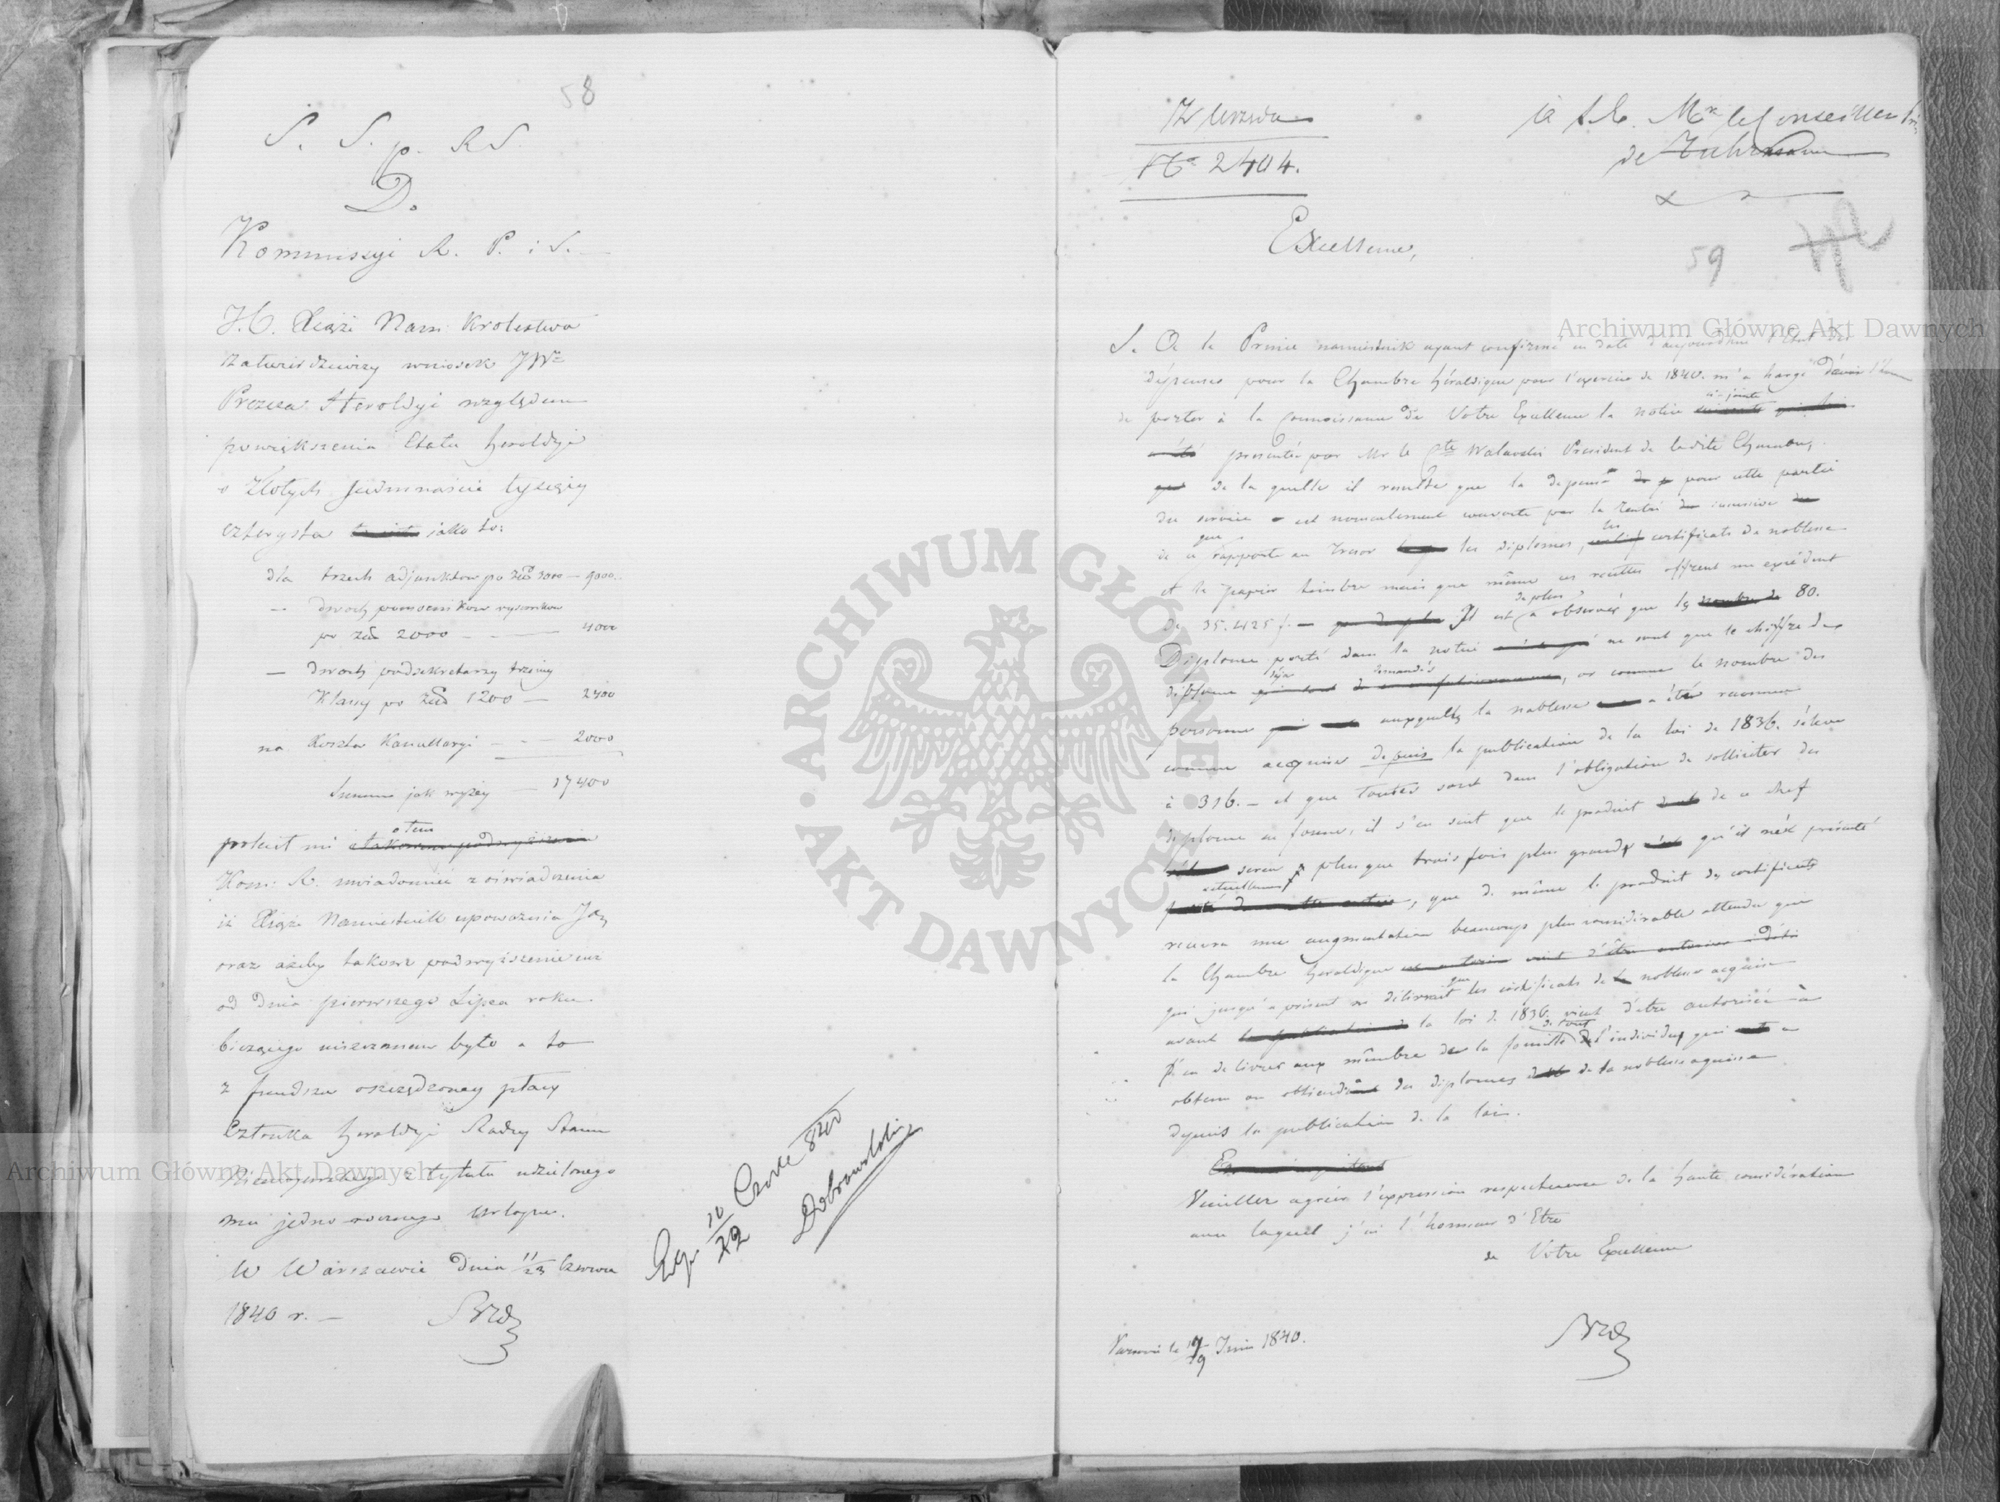 58
S. S. p. R S.
D.
Kommissyi R. P. i S.
J. O. Xiąże Nam: Krolestwa
zatwierdziwszy wniosek JW
Prezesa Heroldyi względem
powiększenia Etatu heroldyi
o Złotych siedmnaście tysięcy
czterysta jako to:
dla trzech adjunktow po 3000 — 9000.
— dwoch pomocnikow rysownika
po 2000 — — 4000
— dwoch podsekretarzy trzeciey
klassy po 1200 — 2400
na koszta kancellaryi — — 2000
Summa jak wyżey — 17400
o tem
polecił mi
Kom: R. uwiadomić z oświadczenia
iż Xiąże Namiestnik upoważnia Ją
oraz ażeby takowe podwyższenie
od dnia pierwszego Lipca roku
bieżącego uiszczanem było a to
z fundszu oszczędzoney płacy
Członka heroldyi Radzy Stanu
z tytułu udzielonego
mu jedno rocznego Urlopu.
W Warszawie dnia 11/23 Czerwca
1840 r. —
Exp. 10/22 Czerwca 840
Dobrowolski
Z Urzędu
No 2404.
à S. E. Mr le Conseiller
de
59
Excellence,
S. A. le Prince namiestnik ayant confirmé en date d'aujourdhui l'Etat des
dépenses pour la Chambre héraldique pour l'exercice de 1840. m'a chargé
de porter à la connoissance de Votre Excellence la notice
ci-jointe
presentée par Mr le Cte Walewski President de ladite Chambre,
de la quelle il resulte que la depense pour cette partie
du service est non seulement couverte par la
que
de ce rapporte au Tresor les diplomes, les certificats de noblesse
et le papier timbre mais que même ces recettes offrent un excédent
de 35.425 f. — Il est de plus à observer que les 80.
Diplome porté dans la notice ne sont que le chiffre des
diplome déja demandés, or comme le nombre des
personnes auxquelles la noblesse a été reconnue
comme acquise depuis la publication de la loi de 1836. s'éleve
à 316. — et que toutes sont dans l'obligation de solliciter des
diplome en forme, il s'en suit que le produit de ce chef
serai plus que trois fois plus grand qu'il n'est présenté
actuellement, que de même le produit des certificats
recevra une augmentation beaucoup plus considerable attendu que
la Chambre heraldique
qui jusqu'a present ne délivrait que les certificats de noblesse acquise
avant la loi de 1836. vient d'etre autorisée à
d'en delivrer aux membre de la famille de tout l'individu qui a
obtenu ou obtiendra des diplomes de la noblesse aquise
depuis la publication de la loi.
Veuillez agréer l'expression respectueuse de la haute considération
avec laquelle j'ai l'honneur d'Etre
de Votre Excellence
Varsovie le Juin 1840.
Archiwum Główne Akt Dawnych
Archiwum Główne Akt Dawnych
ARCHIWUM GŁÓWNE
AKT DAWNYCH